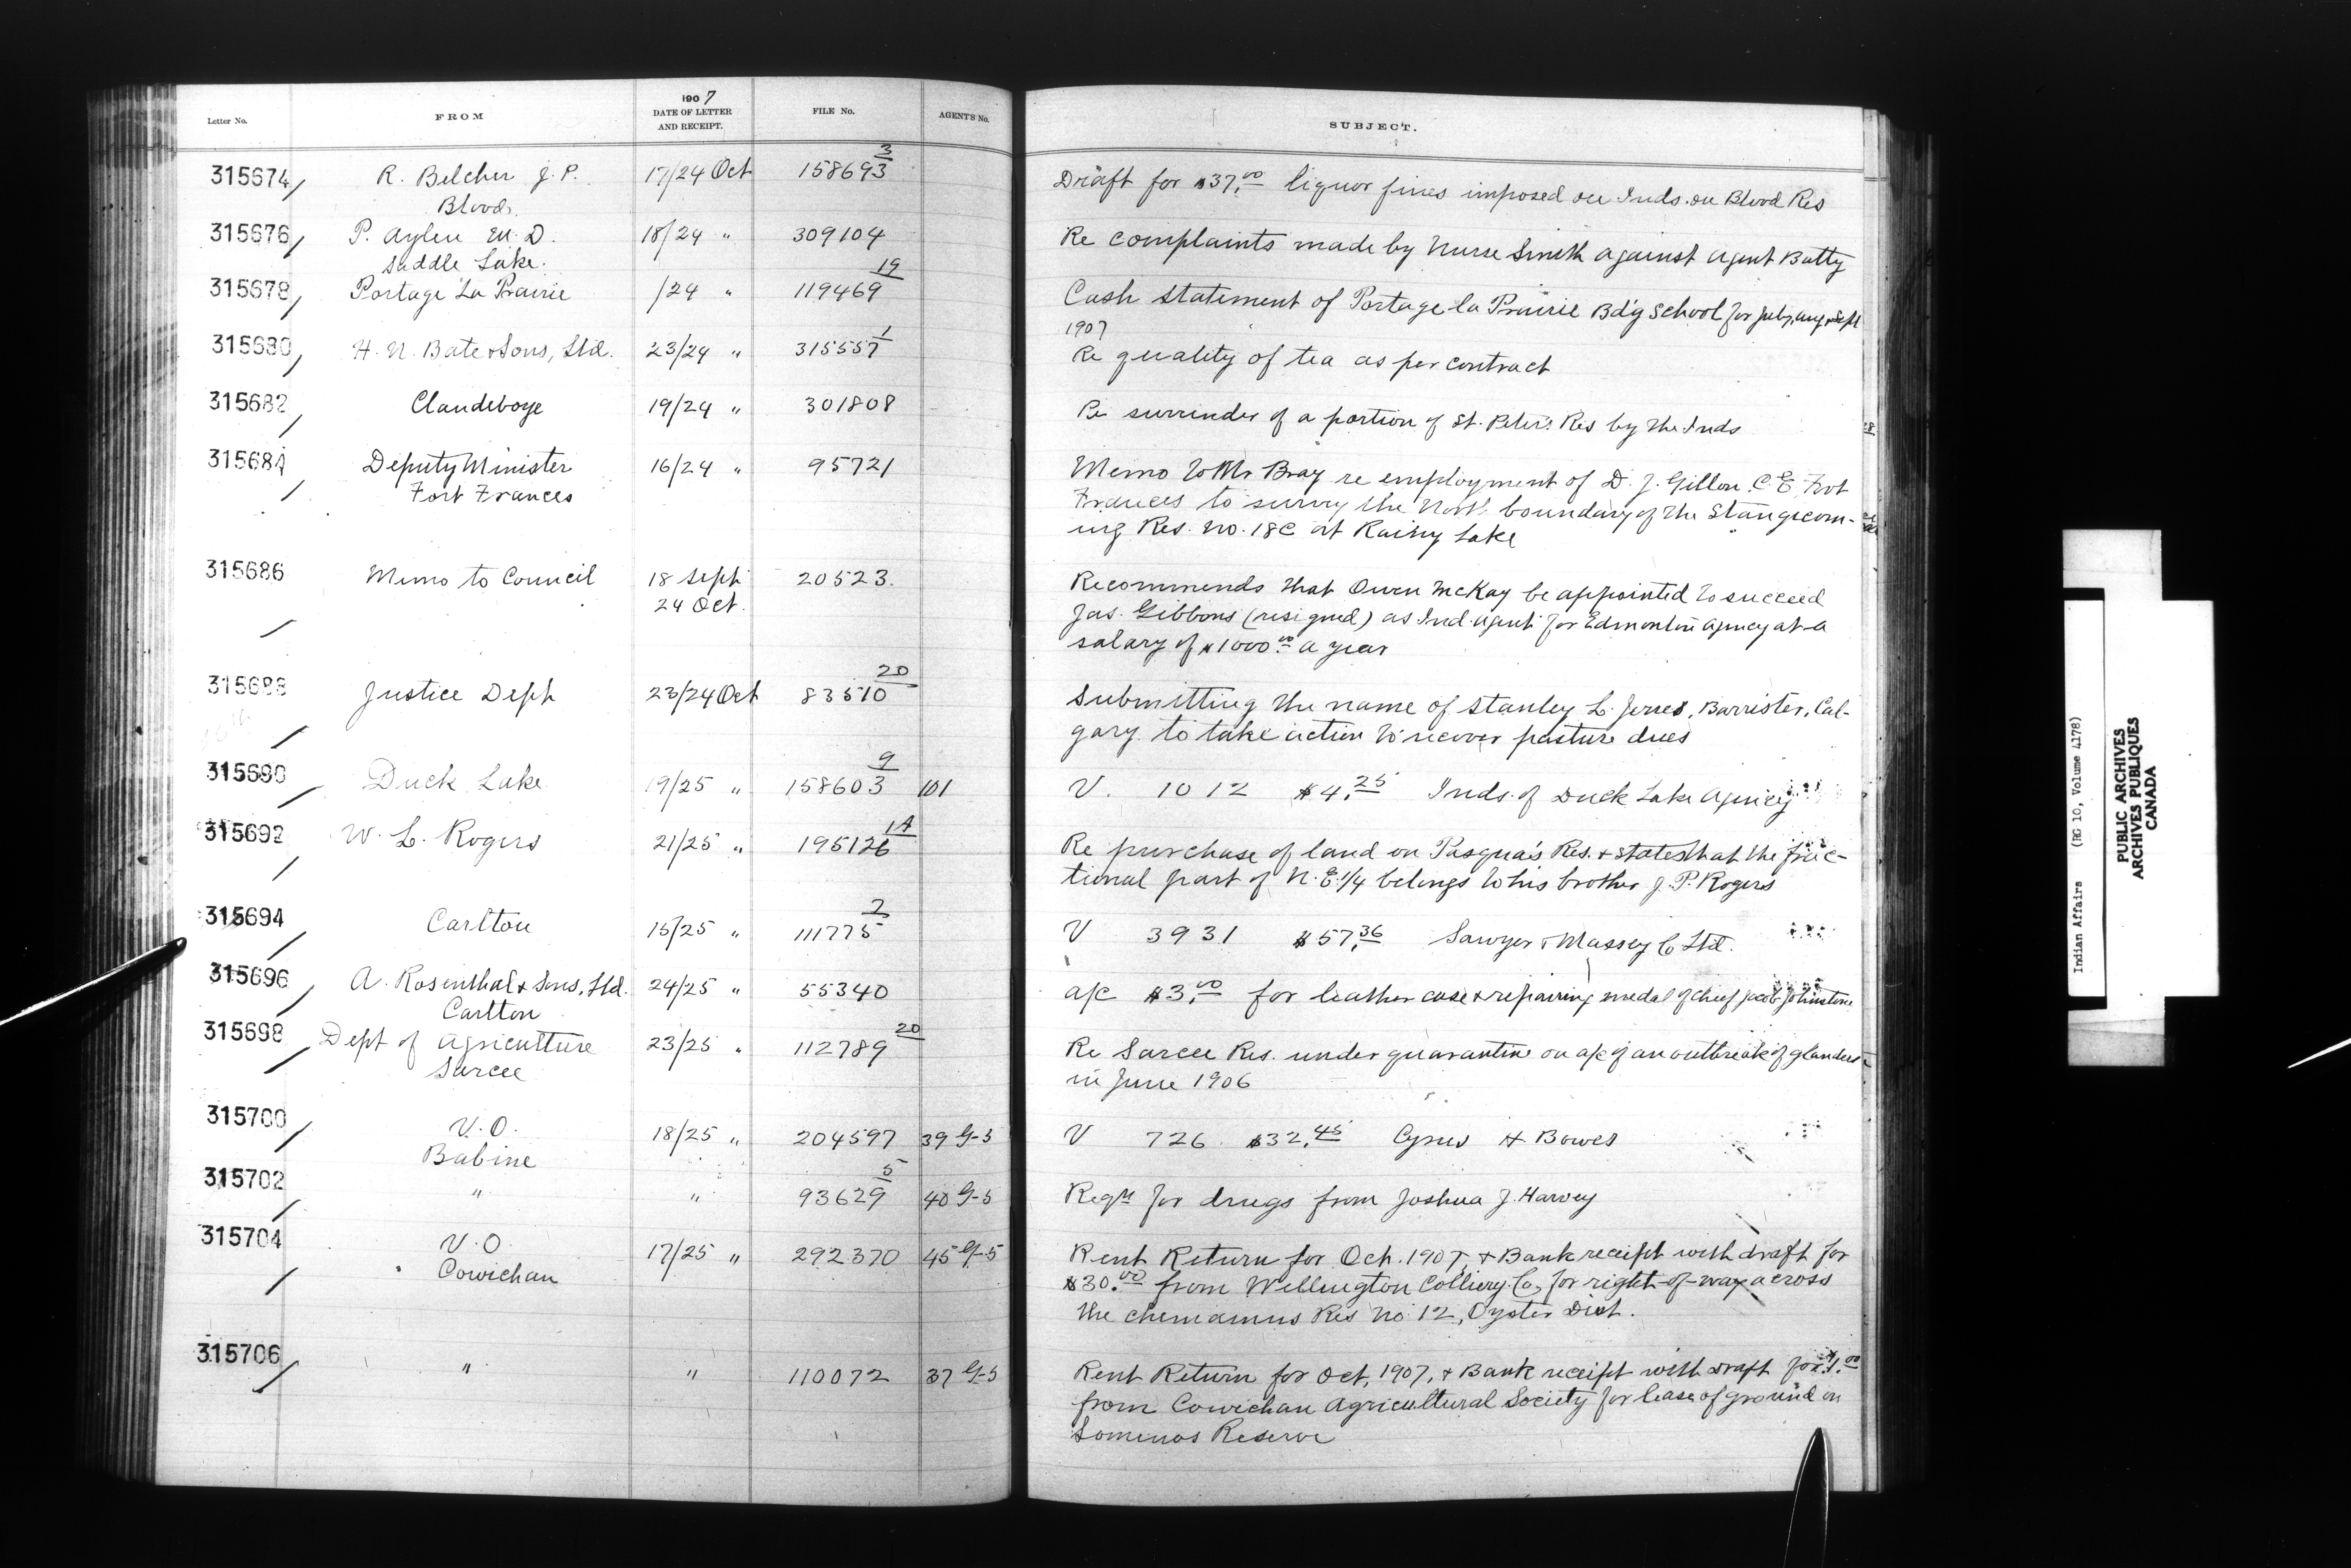 Letter No. FROM 1907 DATE OF LETTER AND RECEIPT. FILE No. AGENT'S No. SUBJECT.
315674 R. Belcher J.P. 17/24 Oct 158693 3 Draft for $37.00 liquor fines imposed on Inds. on Blood Res
Blood.
315676 P. Aylen M.D. 18/24 " 309104 Re complaints made by Nurse Smith against Agent Batty
Saddle Lake.
315678 Portage La Prairie /24 " 119469 19 Cash statement of Portage la Prairie Bdg School for July, Aug & Sept
1907
315680 H. N. Bate & Sons, Ltd. 23/24 " 315557 1 Re quality of tea as per contract
315682 Clandeboye 19/24 " 301808 Re surrender of a portion of St. Peter's Res by the Inds
315684 Deputy Minister 16/24 " 95721 Memo to Mr Bray re employment of D. J. Gillon C.E. Fort
Fort Frances Frances to survey the North boundary of the Stangecom-
ing Res. No. 18C at Rainy Lake
315686 Memo to Council 18 Sept 20523. Recommends that Owen McKay be appointed to succeed
24 Oct. Jas. Gibbons (resigned) as Ind. Agent for Edmonton Agency at a
salary of $1000.00 a year
315688 Justice Dept 23/24 Oct 83510 20 Submitting the name of Stanley L. Jones, Barrister, Cal-
gary to take action to recover pasture dues
315690 Duck Lake 19/25 " 158603 9 101 V. 1012 $4.25 Inds. of Duck Lake Agency
315692 W. L. Rogers 21/25 " 195126 14 Re purchase of land on Pasqua's Res. & states that the frac-
tional part of N.E. 1/4 belongs to his brother J. P. Rogers
315694 Carlton 15/25 " 111775 2 V 3931 $57.36 Sawyer & Massey Co Ltd.
315696 A. Rosenthal & Sons, Ltd. 24/25 " 55340 a/c $3.00 for leather case & repairing medal of Chief Jacob Johnstone
Carlton
315698 Dept of Agriculture 23/25 " 112789 20 Re Sarcee Res. under quarantine on a/c of an outbreak of glanders
Sarcee in June 1906
315700 V.O. 18/25 " 204597 39 G-5 V 726 $32.45 Cyrus H Bowes
Babine
315702 " " 93629 5 40 G-5 Reqn for drugs from Joshua J. Harvey
315704 V.O. 17/25 " 292370 45 G-5 Rent Return for Oct. 1907, & Bank receipt with draft for
Cowichan $30.00 from Wellington Colliery Co, for right-of-way across
the Chemainus Res No 12, Oyster Dist.
315706 " " 110072 37 G-5 Rent Return for Oct, 1907, & Bank receipt with draft for $1.00
from Cowichan Agricultural Society for lease of ground on
Somenos Reserve
Indian Affairs (RG 10, Volume 4178)
PUBLIC ARCHIVES
ARCHIVES PUBLIQUES
CANADA